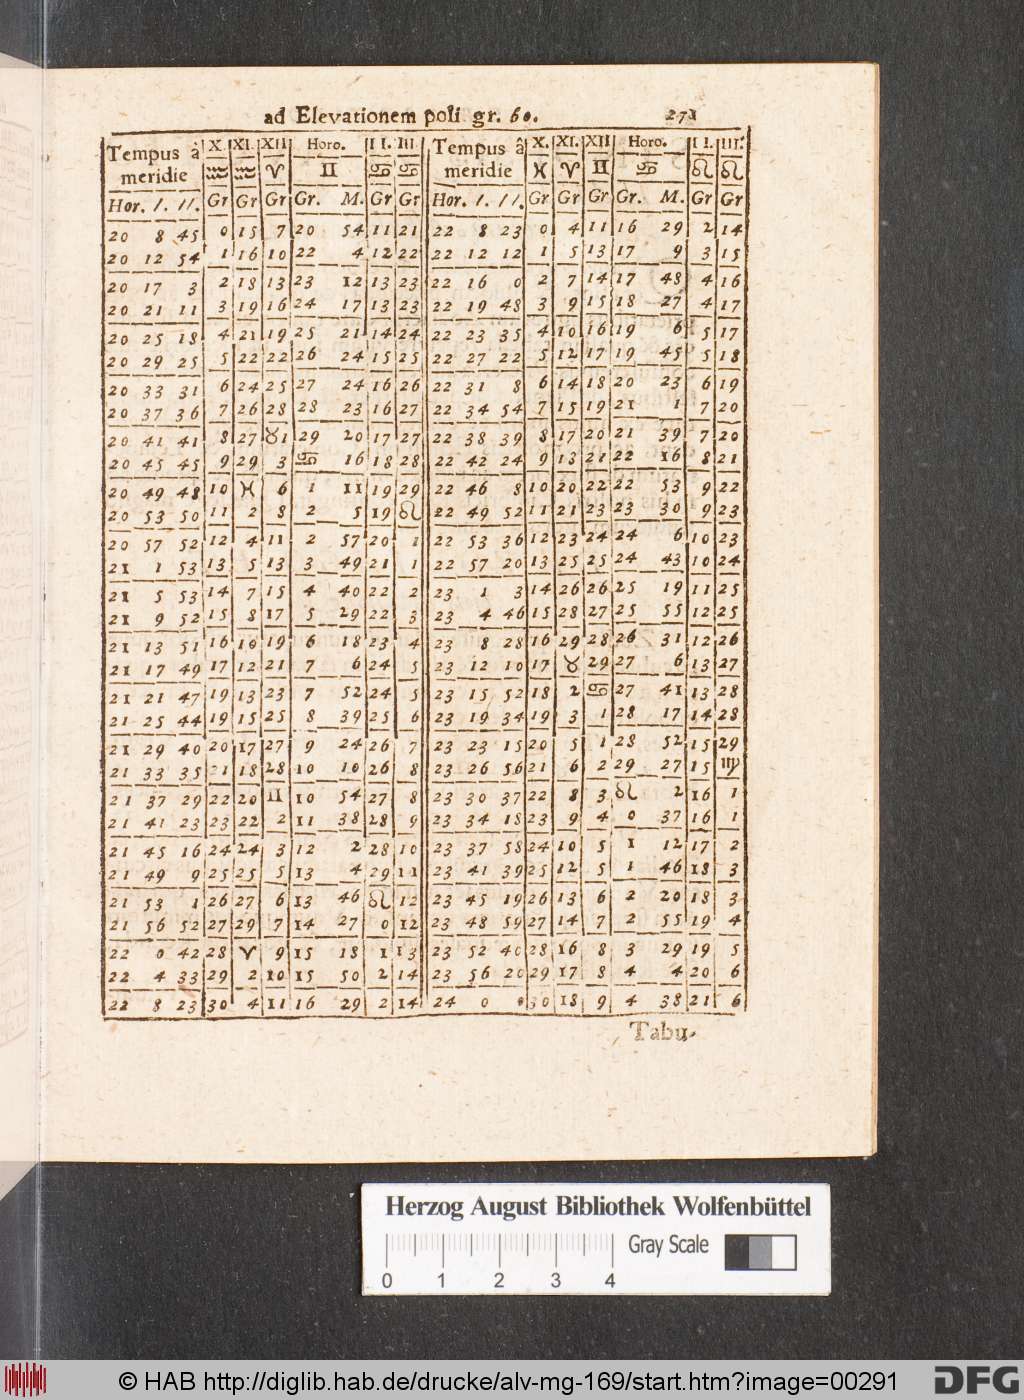 ad Elevationem poli gr. 60. 271
Tempus à meridie X. XI. XII Horo. II. III. Tempus â meridie X. XI. XII Horo. II. III.
♒ ♒ ♈ ♊ ♋ ♋ ♓ ♈ ♊ ♋ ♌ ♌
Hor. I. II. Gr Gr Gr Gr. M. Gr Gr Hor. I. II. Gr Gr Gr Gr. M. Gr Gr
20 8 45 0 15 7 20 54 11 21 22 8 23 0 4 11 16 29 2 14
20 12 54 1 16 10 22 4 12 22 22 12 12 1 5 13 17 9 3 15
20 17 3 2 18 13 23 12 13 23 22 16 0 2 7 14 17 48 4 16
20 21 11 3 19 16 24 17 13 23 22 19 48 3 9 15 18 27 4 17
20 25 18 4 21 19 25 21 14 24 22 23 35 4 10 16 19 6 5 17
20 29 25 5 22 22 26 24 15 25 22 27 22 5 12 17 19 45 5 18
20 33 31 6 24 25 27 24 16 26 22 31 8 6 14 18 20 23 6 19
20 37 36 7 26 28 28 23 16 27 22 34 54 7 15 19 21 1 7 20
20 41 41 8 27 ♉1 29 20 17 27 22 38 39 8 17 20 21 39 7 20
20 45 45 9 29 3 ♋ 16 18 28 22 42 24 9 13 21 22 16 8 21
20 49 48 10 ♓ 6 1 11 19 29 22 46 8 10 20 22 22 53 9 22
20 53 50 11 2 8 2 5 19 ♌ 22 49 52 11 21 23 23 30 9 23
20 57 52 12 4 11 2 57 20 1 22 53 36 12 23 24 24 6 10 23
21 1 53 13 5 13 3 49 21 1 22 57 20 13 25 25 24 43 10 24
21 5 53 14 7 15 4 40 22 2 23 1 3 14 26 26 25 19 11 25
21 9 52 15 8 17 5 29 22 3 23 4 46 15 28 27 25 55 12 25
21 13 51 16 10 19 6 18 23 4 23 8 28 16 29 28 26 31 12 26
21 17 49 17 12 21 7 6 24 5 23 12 10 17 ♉ 29 27 6 13 27
21 21 47 19 13 23 7 52 24 5 23 15 52 18 2 ♋ 27 41 13 28
21 25 44 19 15 25 8 39 25 6 23 19 34 19 3 1 28 17 14 28
21 29 40 20 17 27 9 24 26 7 23 23 15 20 5 1 28 52 15 29
21 33 35 21 18 28 10 10 26 8 23 26 56 21 6 2 29 27 15 ♍
21 37 29 22 20 ♊ 10 54 27 8 23 30 37 22 8 3 ♌ 2 16 1
21 41 23 23 22 2 11 38 28 9 23 34 18 23 9 4 0 37 16 1
21 45 16 24 24 3 12 2 28 10 23 37 58 24 10 5 1 12 17 2
21 49 9 25 25 5 13 4 29 11 23 41 39 25 12 5 1 46 18 3
21 53 1 26 27 6 13 46 ♌ 12 23 45 19 26 13 6 2 20 18 3
21 56 52 27 29 7 14 27 0 12 23 48 59 27 14 7 2 55 19 4
22 0 42 28 ♈ 9 15 18 1 13 23 52 40 28 16 8 3 29 19 5
22 4 33 29 2 10 15 50 2 14 23 56 20 29 17 8 4 4 20 6
22 8 23 30 4 11 16 29 2 14 24 0 0 30 18 9 4 38 21 6
Tabu-
Herzog August Bibliothek Wolfenbüttel
Gray Scale
0 1 2 3 4
© HAB http://diglib.hab.de/drucke/alv-mg-169/start.htm?image=00291
DFG